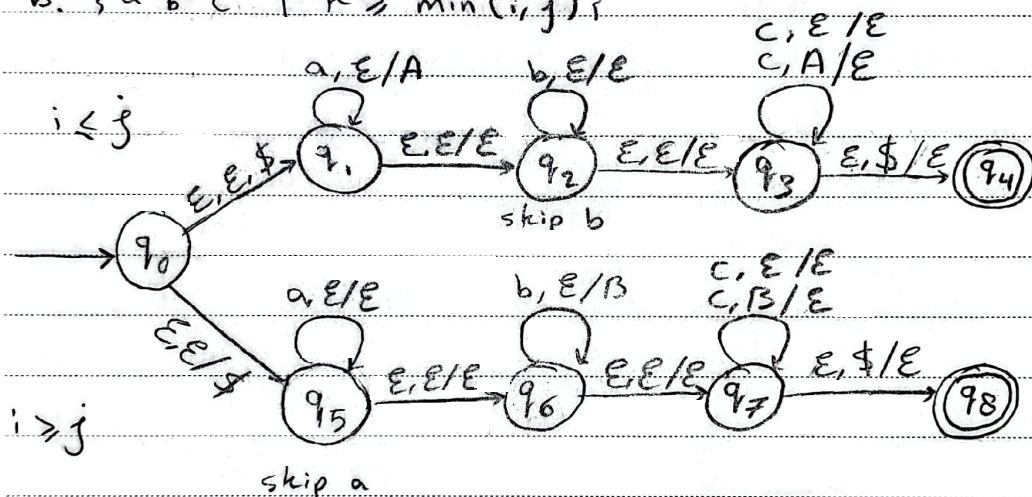 B. { a b c | k ≥ min(i,j) }
c, ε/ε
a, ε/A b, ε/ε c, A/ε
i ≤ j
ε, ε, $ q₁ ε,ε/ε q₂ ε,ε/ε q₃ ε,$/ε q₄
skip b
q₀
c, ε/ε
a, ε/ε b, ε/B c, B/ε
ε,ε/$ q₅ ε,ε/ε q₆ ε,ε/ε q₇ ε,$/ε q₈
i ≥ j
skip a